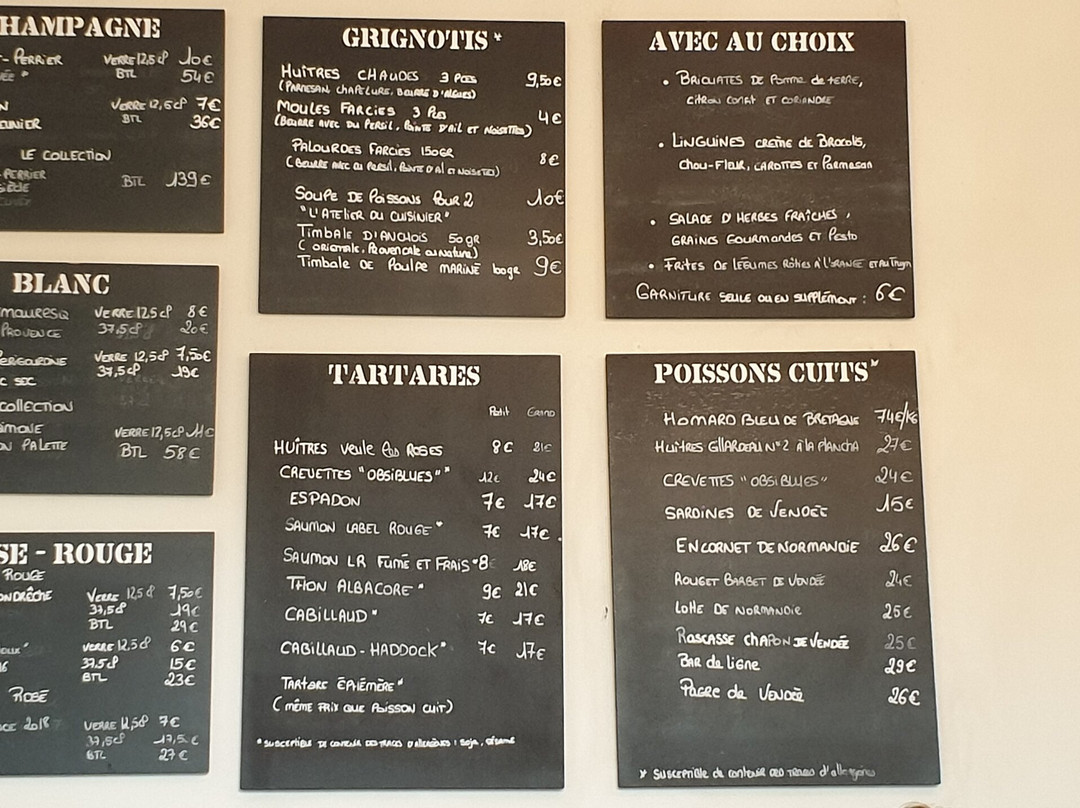 HAMPAGNE
- PERRIER VERRE 12,5 cl 10€
BTL 54€
VERRE 12,5 cl 7€
EUNIER BTL 36€
LE COLLECTION
-PERRIER BTL 139€
BLANC
MAURESQ VERRE 12,5 cl 8€
PROVENCE 37,5 cl 20€
PERIGOURDINE VERRE 12,5 cl 7,50€
C SEC 37,5 cl 19€
COLLECTION
SIMONE VERRE 12,5 cl 11€
ON PALETTE BTL 58€
SE - ROUGE
ROUGE
VERRE 12,5 cl 7,50€
37,5 cl 19€
BTL 29€
VERRE 12,5 cl 6€
37,5 cl 15€
BTL 23€
ROSÉ
CE 2018 VERRE 12,5 cl 7€
37,5 cl 17,5€
BTL 27€
GRIGNOTIS *
HUÎTRES CHAUDES 3 PCES 9,50€
(PARMESAN CHAPELURE, BEURRE D'ALGUES)
MOULES FARCIES 3 PCES 4€
(BEURRE AVEC DU PERSIL, POINTE D'AIL ET NOISETTES)
PALOURDES FARCIES 150GR 8€
(BEURRE AVEC DU PERSIL, POINTE D'AIL ET NOISETTES)
SOUPE DE POISSONS POUR 2 10€
"L'ATELIER DU CUISINIER"
TIMBALE D'ANCHOIS 50gr 3,50€
(ORIGINALE, PROVENCALE OU NATURE)
TIMBALE DE POULPE MARINÉ 100gr 9€
AVEC AU CHOIX
• BRICUATES DE Pomme de TERRE,
CITRON CONFIT ET CORIANDRE
• LINGUINES CRÈME de BROCOLIS,
CHOU-FLEUR, CAROTTES ET PARMESAN
• SALADE D'HERBES FRAÎCHES,
GRAINES GOURMANDES ET PESTO
• FRITES DE LÉGUMES RÔTIES À L'ORANGE ET AU Thym
GARNITURE SEULE OU EN SUPPLÉMENT : 6€
TARTARES
Petit Grand
HUÎTRES Veule les ROSES 8€ 21€
CREVETTES "OBSIBLUES" * 12€ 24€
ESPADON 7€ 17€
SAUMON LABEL ROUGE * 7€ 17€
SAUMON LR FUMÉ ET FRAIS * 8 18€
THON ALBACORE * 9€ 21€
CABILLAUD * 7€ 17€
CABILLAUD - HADDOCK * 7€ 17€
TARTARE ÉPHÉMÈRE *
(MÊME PRIX QUE POISSON CUIT)
* SUSCEPTIBLE DE CONTENIR DES TRACES D'ALLERGÈNES : SOJA, SÉSAME
POISSONS CUITS *
HOMARD BLEU DE BRETAGNE 74€/KG
HUÎTRES GILLARDEAU N°2 À LA PLANCHA 27€
CREVETTES "OBSIBLUES" 24€
SARDINES DE VENDÉE 15€
ENCORNET DE NORMANDIE 26€
ROUGET BARBET DE VENDÉE 24€
LOTTE DE NORMANDIE 25€
RASCASSE CHAPON DE VENDÉE 25€
BAR de LIGNE 29€
PAGRE de VENDÉE 26€
* SUSCEPTIBLE de CONTENIR DES TRACES d'allergènes